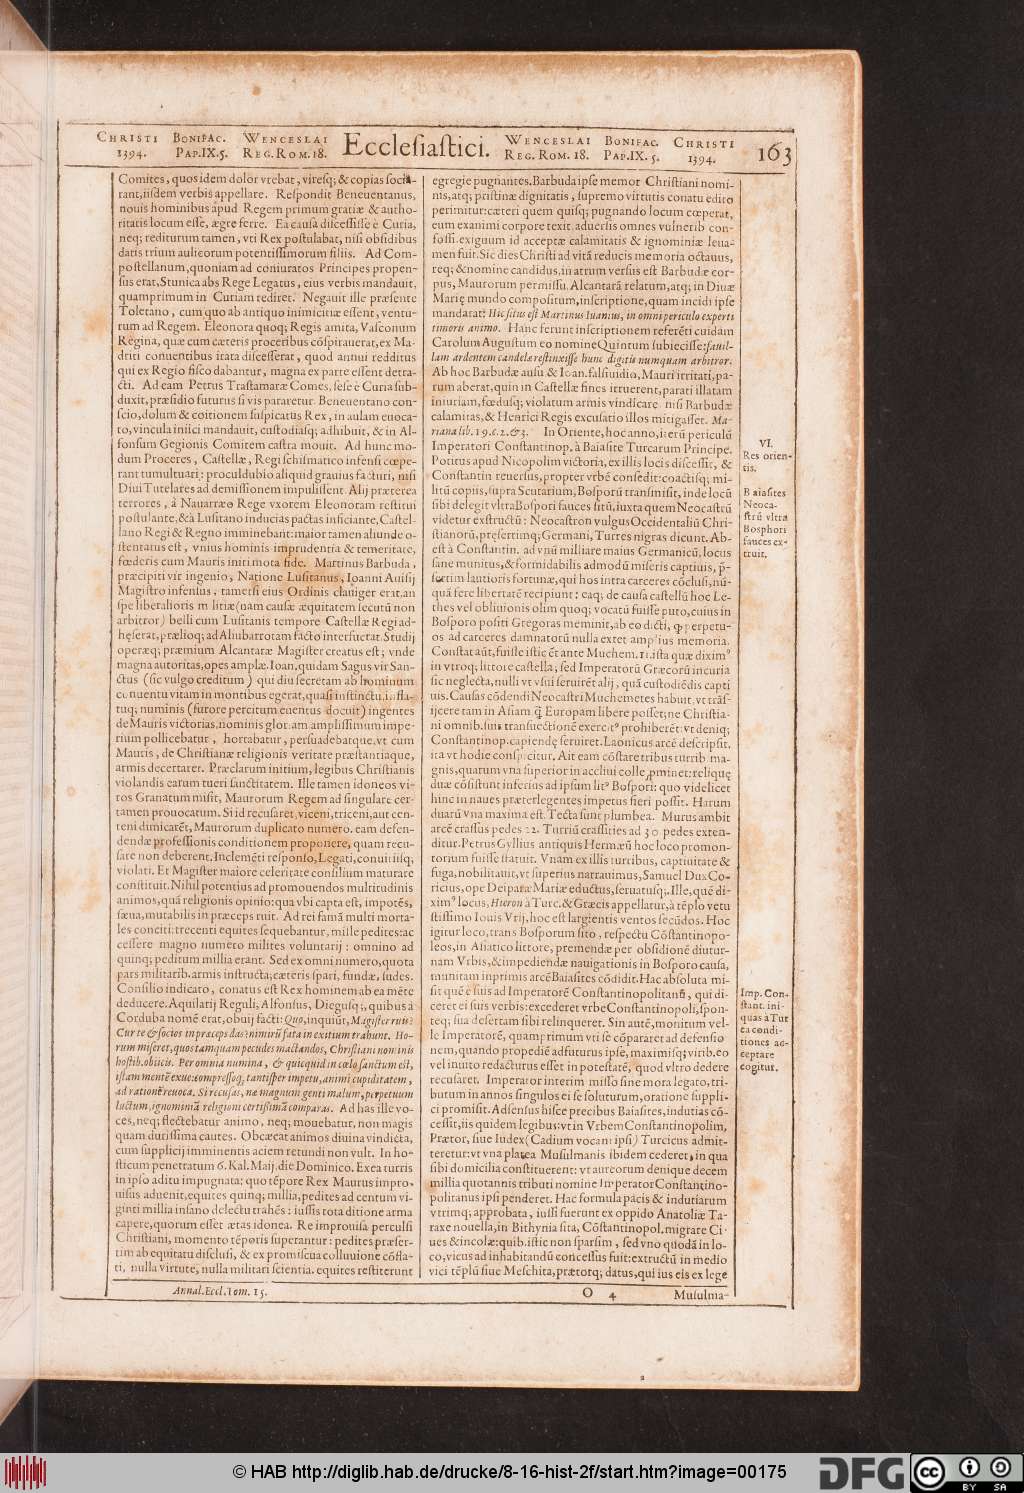 CHRISTI BONIFAC. WENCESLAI Ecclesiastici. WENCESLAI BONIFAC. CHRISTI 163
1394. PAP.IX.5. REG.ROM.18. REG.ROM.18. PAP.IX.5. 1394.
Comites, quos idem dolor vrebat, viresq; & copias socia-
rant, iisdem verbis appellare. Respondit Beneuentanus,
nouis hominibus apud Regem primum gratiæ & autho-
ritatis locum esse, ægre ferre. Ea causa discessisse è Curia,
neq; rediturum tamen, vti Rex postulabat, nisi obsidibus
datis trium aulicorum potentissimorum filiis. Ad Com-
postellanum, quoniam ad coniuratos Principes propen-
sus erat, Stunica abs Rege Legatus, eius verbis mandauit,
quamprimum in Curiam rediret. Negauit ille præsente
Toletano, cum quo ab antiquo inimicitiæ essent, ventu-
rum ad Regem. Eleonora quoq; Regis amita, Vasconum
Regina, quæ cum cæteris proceribus cōspirauerat, ex Ma-
driti conuentibus irata discesserat, quod annui redditus
qui ex Regio fisco dabantur, magna ex parte essent detra-
cti. Ad eam Petrus Trastamaræ Comes, sese è Curia sub-
duxit, præsidio futurus si vis pararetur. Beneuentano con-
scio, dolum & coitionem suspicatus Rex, in aulam euoca-
to, vincula iniici mandauit, custodiasq; adhibuit, & in Al-
fonsum Gegionis Comitem castra mouit. Ad hunc mo-
dum Proceres, Castellæ, Regi schismatico infensi cœpe-
rant tumultuari: proculdubio aliquid grauius facturi, nisi
Diui Tutelares ad demissionem impulissent. Alij præterea
terrores, à Nauarræo Rege vxorem Eleonoram restitui
postulante, & à Lusitano inducias pactas inficiante, Castel-
lano Regi & Regno imminebant: maior tamen aliunde o-
stentatus est, vnius hominis imprudentia & temeritate,
fœderis cum Mauris initi mota fide. Martinus Barbuda,
præcipiti vir ingenio, Natione Lusitanus, Ioanni Auisij
Magistro infensus, tametsi eius Ordinis clauiger erat, an
spe liberalioris militiæ (nam causæ æquitatem secutū non
arbitror) belli cum Lusitanis tempore Castellæ Regi ad-
hęserat, prælioq; ad Aliubarrotam facto interfuerat. Studij
operæq; præmium Alcantaræ Magister creatus est; vnde
magna autoritas, opes amplæ. Ioan. quidam Sagus vir San-
ctus (sic vulgo creditum) qui diu secretam ab hominum
conuentu vitam in montibus egerat, quasi instinctu, infla-
tuq; numinis (furore percitum euentus docuit) ingentes
de Mauris victorias, nominis gloriam amplissimum impe-
rium pollicebatur, hortabatur, persuadebatque, vt cum
Mauris, de Christianæ religionis veritate præstantiaque,
armis decertaret. Præclarum initium, legibus Christianis
violandis earum tueri sanctitatem. Ille tamen idoneos vi-
ros Granatum misit, Maurorum Regem ad singulare cer-
tamen prouocatum. Si id recusaret, viceni, triceni, aut cen-
teni dimicarēt, Maurorum duplicato numero. eam defen-
dendæ professionis conditionem proponere, quam recu-
sare non deberent. Inclemēti responso, Legati, conuitiisq,
violati. Et Magister maiore celeritate consilium maturare
constituit. Nihil potentius ad promouendos multitudinis
animos, quā religionis opinio: qua vbi capta est, impotēs,
sæua, mutabilis in præceps ruit. Ad rei famā multi morta-
les conciti: trecenti equites sequebantur, mille pedites: ac
cessere magno numero milites voluntarij: omnino ad
quinq; peditum millia erant. Sed ex omni numero, quota
pars militarib. armis instructa, cæteris spari, fundæ, sudes.
Consilio indicato, conatus est Rex hominem ab ea mēte
deducere. Aquilarij Reguli, Alfonsus, Diegusq;, quibus à
Corduba nomē erat, obuij facti: Quo, inquiūt, Magister ruis?
Cur te & socios in præceps das? nimirū fata in exitium trahunt. Ho-
rum miseret, quos tamquam pecudes mactandos, Christiani nominis
hostib. obiicis. Per omnia numina, & quicquid in cœlo sanctum est,
istam mentē exue: compressoq, tantisper impetu, animi cupiditatem,
ad rationē reuoca. Si recusas, næ magnum genti malum, perpetuum
luctum, ignominiā religioni certissimā comparas. Ad has ille vo-
ces, neq; flectebatur animo, neq; mouebatur, non magis
quam durissima cautes. Obcæcat animos diuina vindicta,
cum supplicij imminentis aciem retundi non vult. In ho-
sticum penetratum 6. Kal. Maij. die Dominico. Exea turris
in ipso aditu impugnata: quo tēpore Rex Maurus impro-
uisus aduenit, equites quinq; millia, pedites ad centum vi-
ginti millia insano delectu trahēs: iussis tota ditione arma
capere, quorum esset ætas idonea. Re improuisa perculsi
Christiani, momento tēporis superantur: pedites præser-
tim ab equitatu disclusi, & ex promiscua colluuione cōfla-
ti, nulla virtute, nulla militari scientia. equites restiterunt
egregie pugnantes. Barbuda ipse memor Christiani nomi-
nis, atq; pristinæ dignitatis, supremo virtutis conatu edito
perimitur: cæteri quem quisq; pugnando locum cœperat,
eum exanimi corpore texit. aduersis omnes vulnerib. con-
fossi. exiguum id acceptæ calamitatis & ignominiæ leua-
men fuit. Sic dies Christi ad vitā reducis memoria octauus,
req; & nomine candidus, in atrum versus est Barbudæ cor-
pus, Maurorum permissu, Alcantarā relatum, atq; in Diuæ
Marię mundo compositum, inscriptione, quam incidi ipse
mandarat: Hic situs est Martinus Iuanius, in omni periculo experti
timoris animo. Hanc ferunt inscriptionem referēti cuidam
Carolum Augustum eo nomine Quintum subiecisse: fauil-
lam ardentem candelæ restinxisse hunc digitis numquam arbitror.
Ab hoc Barbudæ ausu & Ioan. falsiuidio, Mauri irritati, pa-
rum aberat, quin in Castellæ fines irruerent, parati illatam
iniuriam, fœdusq; violatum armis vindicare nisi Barbudæ
calamitas, & Henrici Regis excusatio illos mitigasset. Ma-
riana lib. 19. c. 2. & 3. In Oriente, hoc anno, iterū periculū
Imperatori Constantinop. à Baiasite Turcarum Principe.
Potitus apud Nicopolim victoria, ex illis locis discessit, &
Constantin reuersus, propter vrbē consedit: coactisq; mi-
litū copiis, supra Scutarium, Bosporū transmisit, inde locū
sibi delegit vltra Bospori fauces sitū, iuxta quem Neocastrū
videtur exstructū: Neocastron vulgus Occidentaliū Chri-
stianorū, presertimq; Germani, Turres nigras dicunt. Ab-
est à Constantin. ad vnū milliare maius Germanicū, locus
sane munitus, & formidabilis admodū miseris captiuis, p̄-
sertim lautioris fortunæ, qui hos intra carceres cōclusi, nū-
quā fere libertatē recipiunt: eaq; de causa castellū hoc Le-
thes vel obliuionis olim quoq; vocatū fuisse puto, cuius in
Bosporo positi Gregoras meminit, ab eo dicti, q perpetu-
os ad carceres damnatorū nulla extet amplius memoria.
Constat aūt, fuisse istic ēt ante Muchem. ista quæ diximꝰ
in vtroq; littore castella; sed Imperatorū Græcorū incuria
sic neglecta, nulli vt vsui seruirēt alij, quā custodiēdis capti
uis. Causas cōdendi Neocastri Muchemetes habuit, vt trās-
ijcere tam in Asiam q̄ Europam libere posset; ne Christia-
ni omnib. suis transuectionē exercitꝰ prohiberēt: vt deniq;
Constantinop. capiendę seruiret. Laonicus arcē descripsit,
ita vt hodie conspicitur. Ait eam cōstare tribus turrib. ma-
gnis, quarum vna superior in accliui colle, pminet: reliquę
duæ cōsistunt inferius ad ipsum litꝰ Bospori: quo videlicet
hinc in naues præterlegentes impetus fieri possit. Harum
duarū vna maxima est. Tecta sunt plumbea. Murus ambit
arcē crassus pedes 22. Turriū crassities ad 30 pedes exten-
ditur. Petrus Gyllius antiquis Hermæū hoc loco promon-
torium fuisse statuit. Vnam ex illis turribus, captiuitate &
fuga, nobilitauit, vt superius narrauimus, Samuel Dux Co-
ricius, ope Deiparæ Mariæ eductus, seruatusq;. Ille, quē di-
ximꝰ locus, Hieron à Turc. & Græcis appellatur, à tēplo vetu
stissimo Iouis Vrij, hoc est largientis ventos secūdos. Hoc
igitur loco, trans Bosporum sito, respectu Cōstantinopo-
leos, in Asiatico littore, premendæ per obsidionē diutur-
nam Vrbis, & impediendæ nauigationis in Bosporo causa,
munitam inprimis arcē Baiasites cōdidit. Hac absoluta mi-
sit quē e suis ad Imperatorē Constantinopolitanū, qui di-
ceret ei suis verbis: excederet vrbe Constantinopoli, spon-
teq; sua desertam sibi relinqueret. Sin autē, monitum vel-
le Imperatorē, quamprimum vti se cōpararet ad defensio
nem, quando propediē adfuturus ipse, maximisq; virib. eo
vel inuito redacturus esset in potestatē, quod vltro dedere
recusaret. Imperator interim misso sine mora legato, tri-
butum in annos singulos ei se soluturum, oratione suppli-
ci promisit. Adsensus hisce precibus Baiasites, indutias cō-
cessit, iis quidem legibus: vt in Vrbem Constantinopolim,
Prætor, siue Iudex (Cadium vocant ipsi) Turcicus admit-
teretur: vt vna platea Musulmanis ibidem cederet, in qua
sibi domicilia constituerent: vt aureorum denique decem
millia quotannis tributi nomine Imperator Constantino-
politanus ipsi penderet. Hac formula pacis & indutiarum
vtrimq; approbata, iussi fuerunt ex oppido Anatoliæ Ta-
raxe nouella, in Bithynia sita, Cōstantinopol. migrare Ci-
ues & incolæ: quib. istic non sparsim, sed vno quodā in lo-
co, vicus ad inhabitandū concessus fuit: extructū in medio
vici tēplū siue Meschita, prætorq; datus, qui ius eis ex lege
VI.
Res orien-
tis.
Baiasites
Neoca-
strū vltra
Bosphori
fauces ex-
truit.
Imp. Con-
stant. ini-
quas à Tur
ca condi-
tiones ac-
ceptare
cogitur.
Annal. Eccl. Tom. 15. O 4 Musulma-
© HAB http://diglib.hab.de/drucke/8-16-hist-2f/start.htm?image=00175
DFG cc BY SA